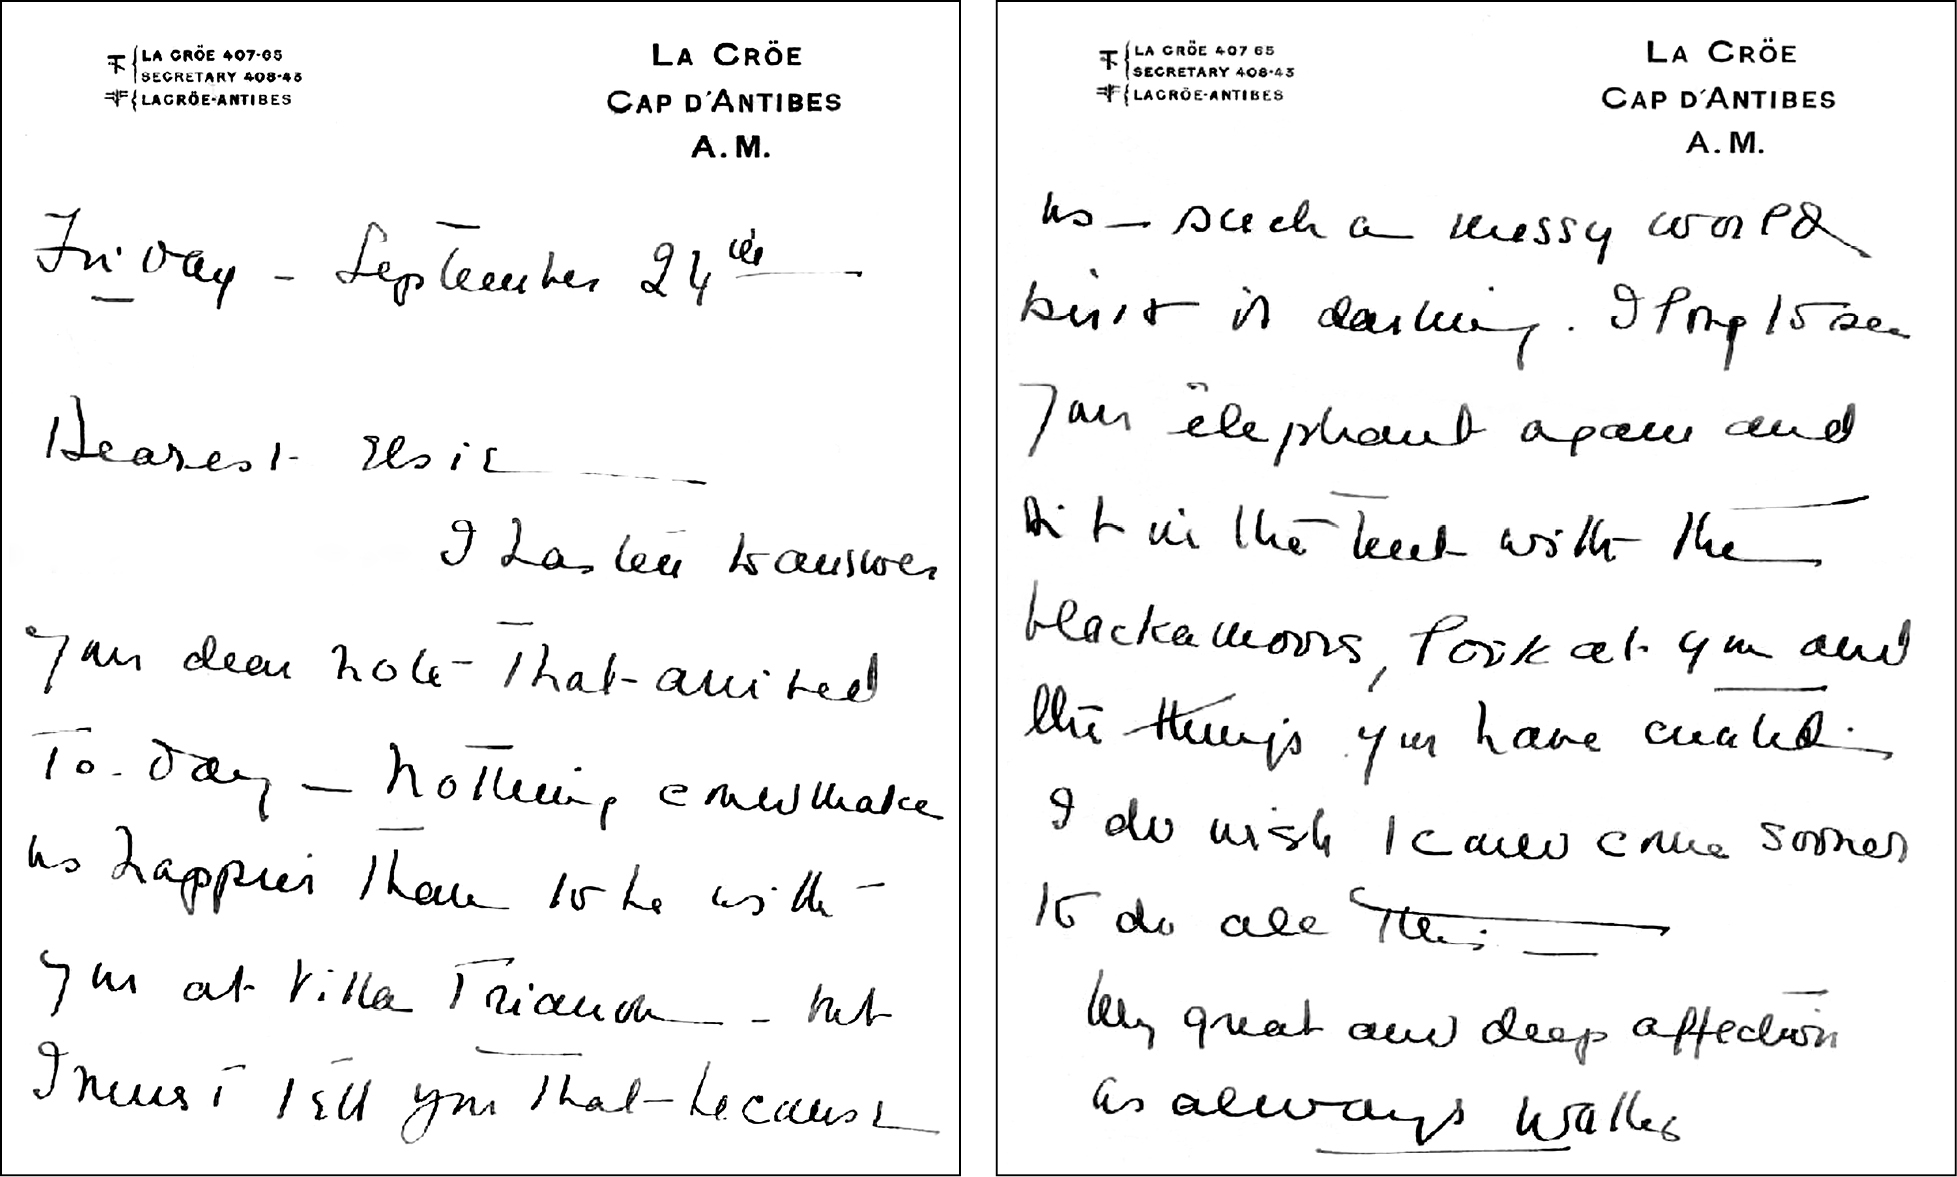 LA CRÖE 407-65
SECRETARY 408-43
LACRÖE-ANTIBES
LA CRÖE
CAP D'ANTIBES
A.M.
Friday - September 24th
Dearest Elsie
I hasten to answer
your dear note that arrived
To-day — nothing could make
us happier than to be with
you at Villa Trianon - but
I must tell you that because
LA CRÖE 407 65
SECRETARY 408-43
LACRÖE-ANTIBES
LA CRÖE
CAP D'ANTIBES
A.M.
us — such a messy world
isn't it darling. I long to see
your elephant again and
sit in the tent with the
blackamoors, look at you and
the things you have created.
I do wish I could come sooner
to do all this —
My great and deep affection
as always Wallis